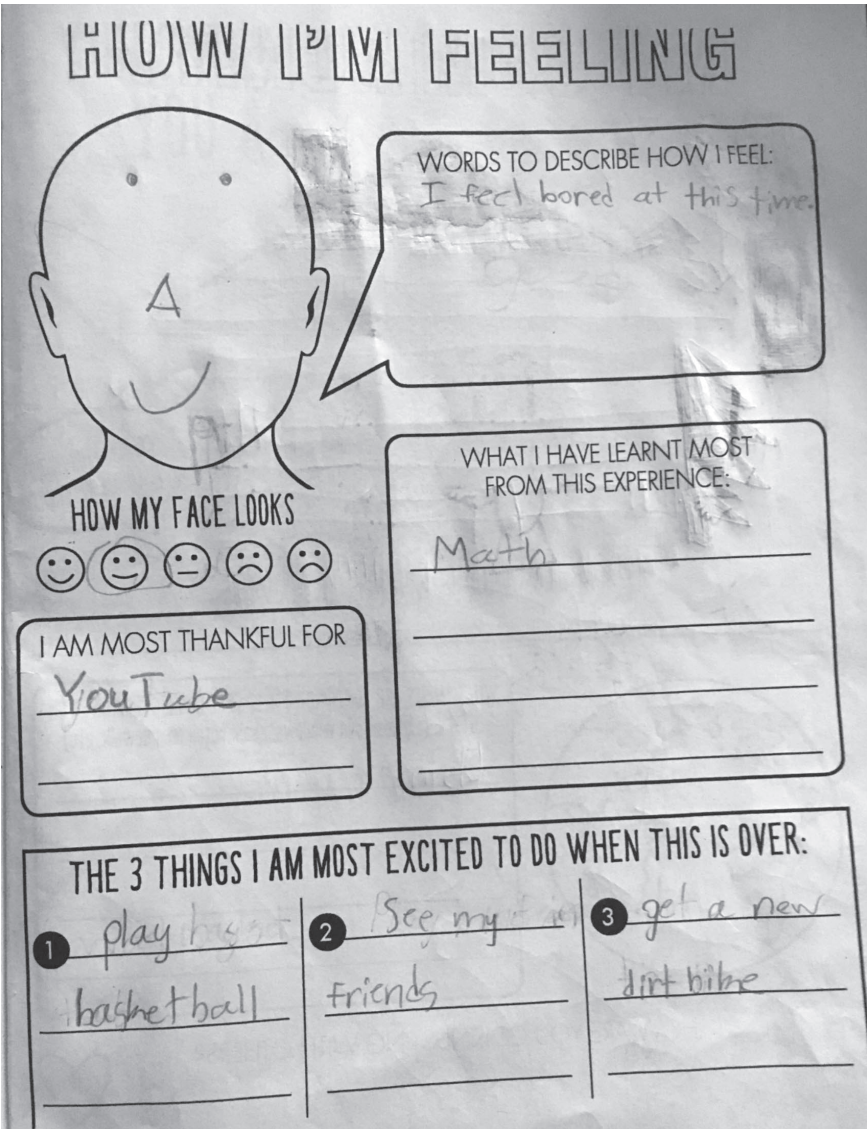 HOW I'M FEELING
WORDS TO DESCRIBE HOW I FEEL:
I feel bored at this time.
WHAT I HAVE LEARNT MOST
FROM THIS EXPERIENCE:
Math
HOW MY FACE LOOKS
I AM MOST THANKFUL FOR
YouTube
THE 3 THINGS I AM MOST EXCITED TO DO WHEN THIS IS OVER:
1 play
basketball
2 See my
friends
3 get a new
dirt bike